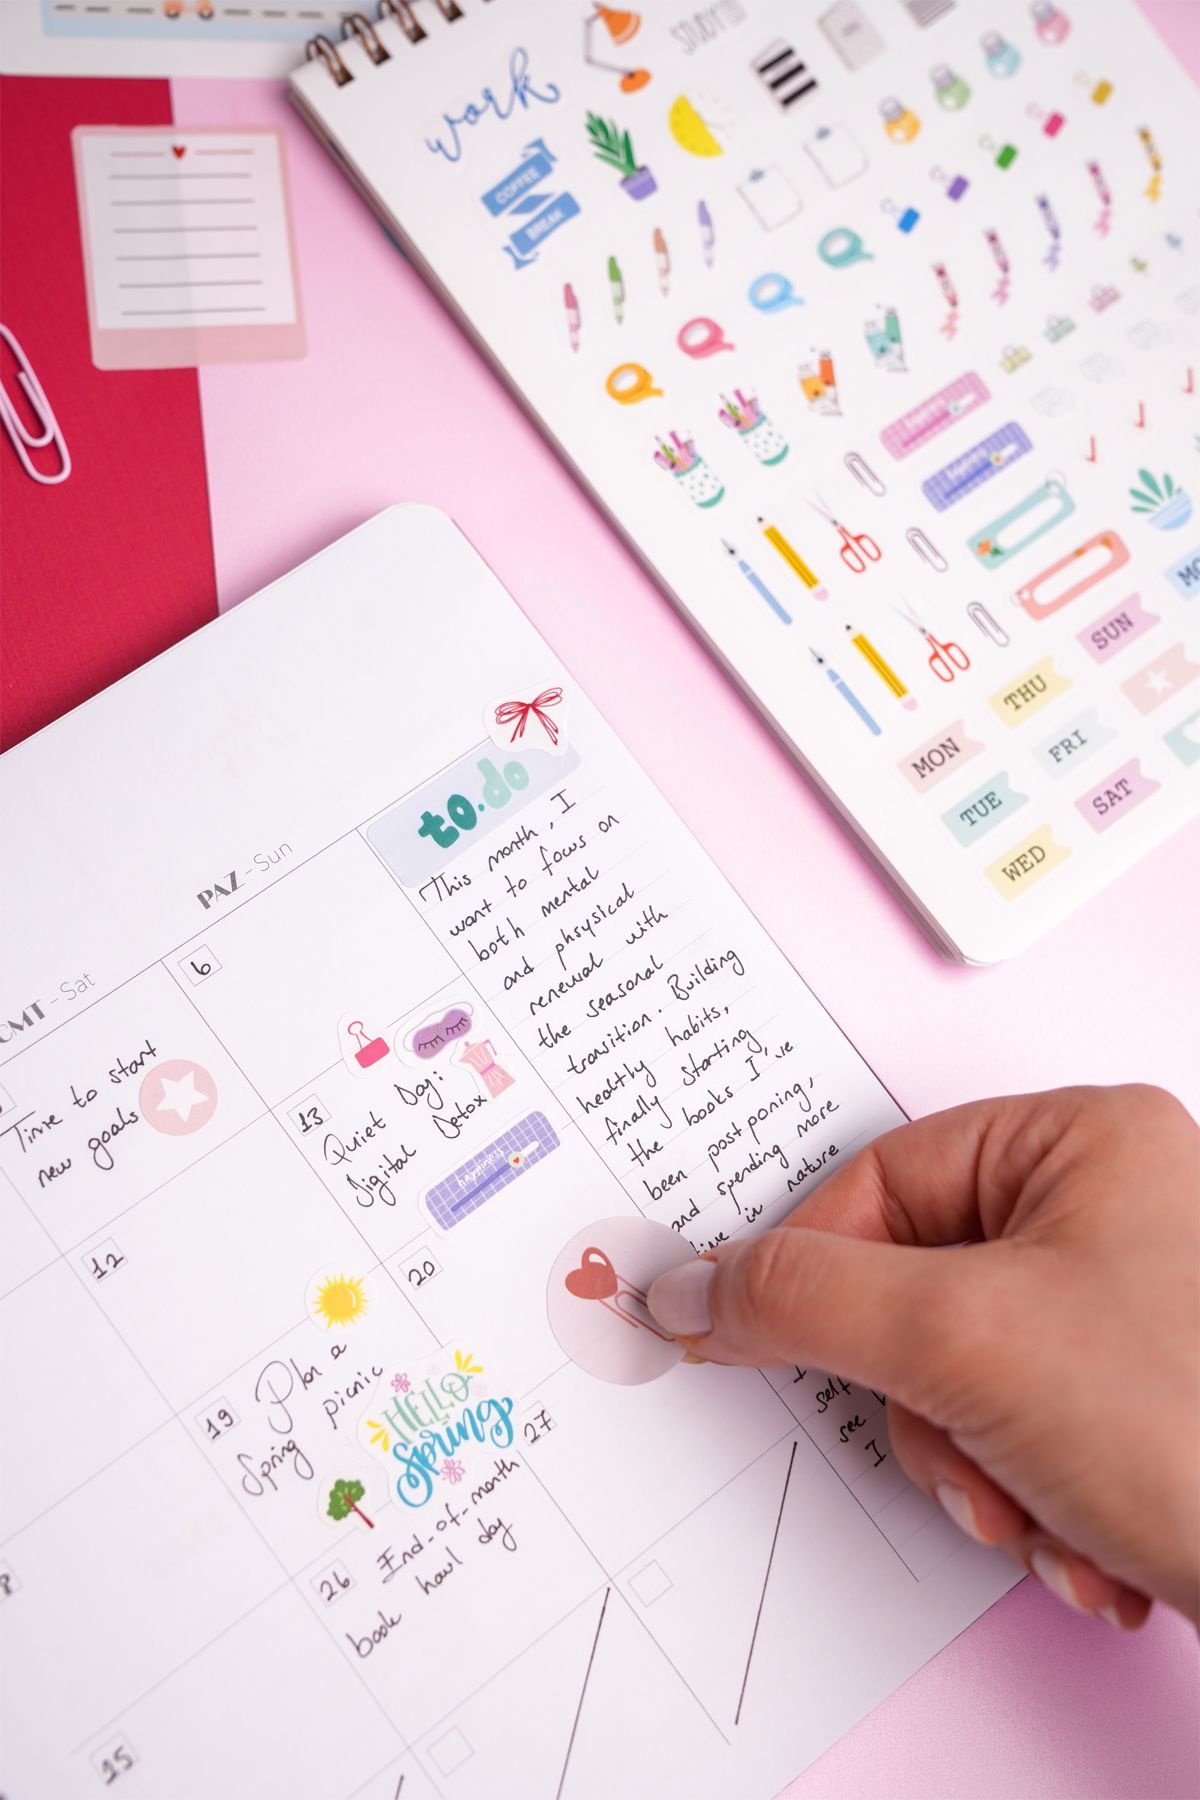 work
STUDY
COFFEE
BREAK
happiness
MON
THU
SUN
TUE
FRI
WED
SAT
to.do
This month, I
want to focus on
both mental
and phsyical
renewal with
the seasonal
transition. Building
healthy habits,
finally starting
the books I've
been postponing,
and spending more
time in nature
I
self
see
I
PAZ - Sun
CMT - Sat
6
Time to start
new goals
13
Quiet Day:
Digital Detox
happiness
12
20
19
Plan a
Spring picnic
HELLO
spring
27
26
End-of-month
book haul day
15